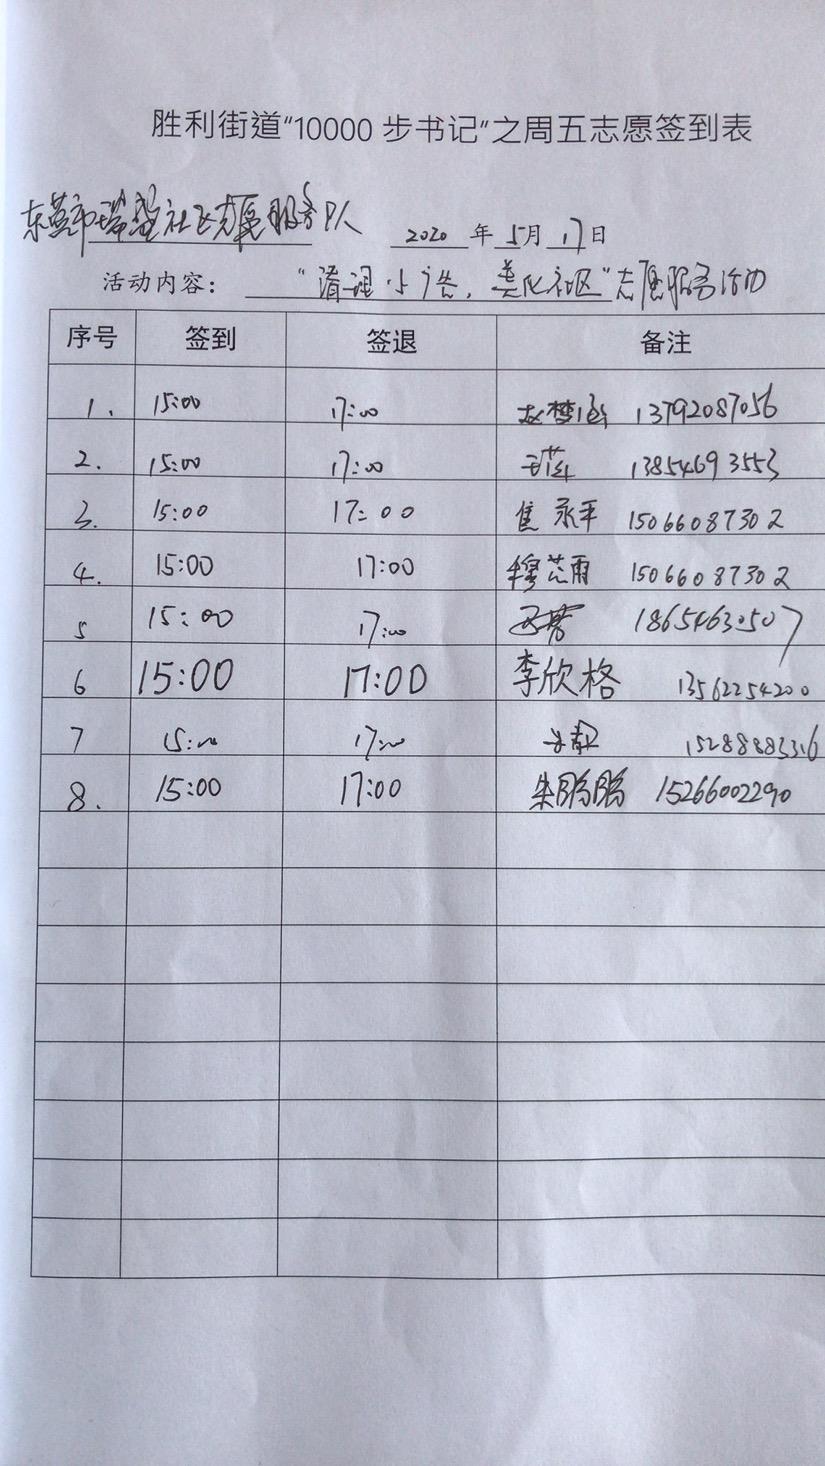 胜利街道“10000 步书记”之周五志愿签到表
东营市瑞盛社区志愿服务队
2020 年 5月 17日
活动内容： “清理小广告，美化社区”志愿服务活动
序号 签到 签退 备注
1. 15:00 17:00 赵梦涵 13792087056
2. 15:00 17:00 13854693553
3. 15:00 17:00 焦永平 15066087302
4. 15:00 17:00 穆芷雨 15066087302
5 15:00 17:00 18654630507
6 15:00 17:00 李欣格 13562254200
7 15:00 17:00
8. 15:00 17:00 朱鹏鹏 15266002290